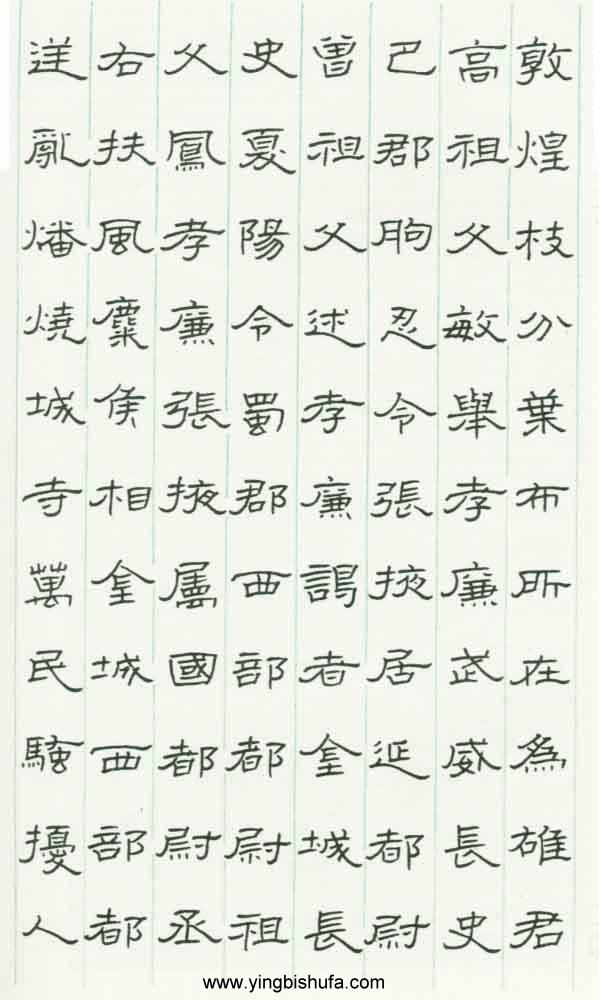 敦煌枝分葉布所在為雄君
高祖父敏舉孝廉武威長史
巴郡朐忍令張掖居延都尉
曾祖父述孝廉謁者金城長
史夏陽令蜀郡西部都尉祖
父鳳孝廉張掖屬國都尉丞
右扶風麋侯相金城西部都
逆亂燔燒城寺萬民騷擾人
www.yingbishufa.com